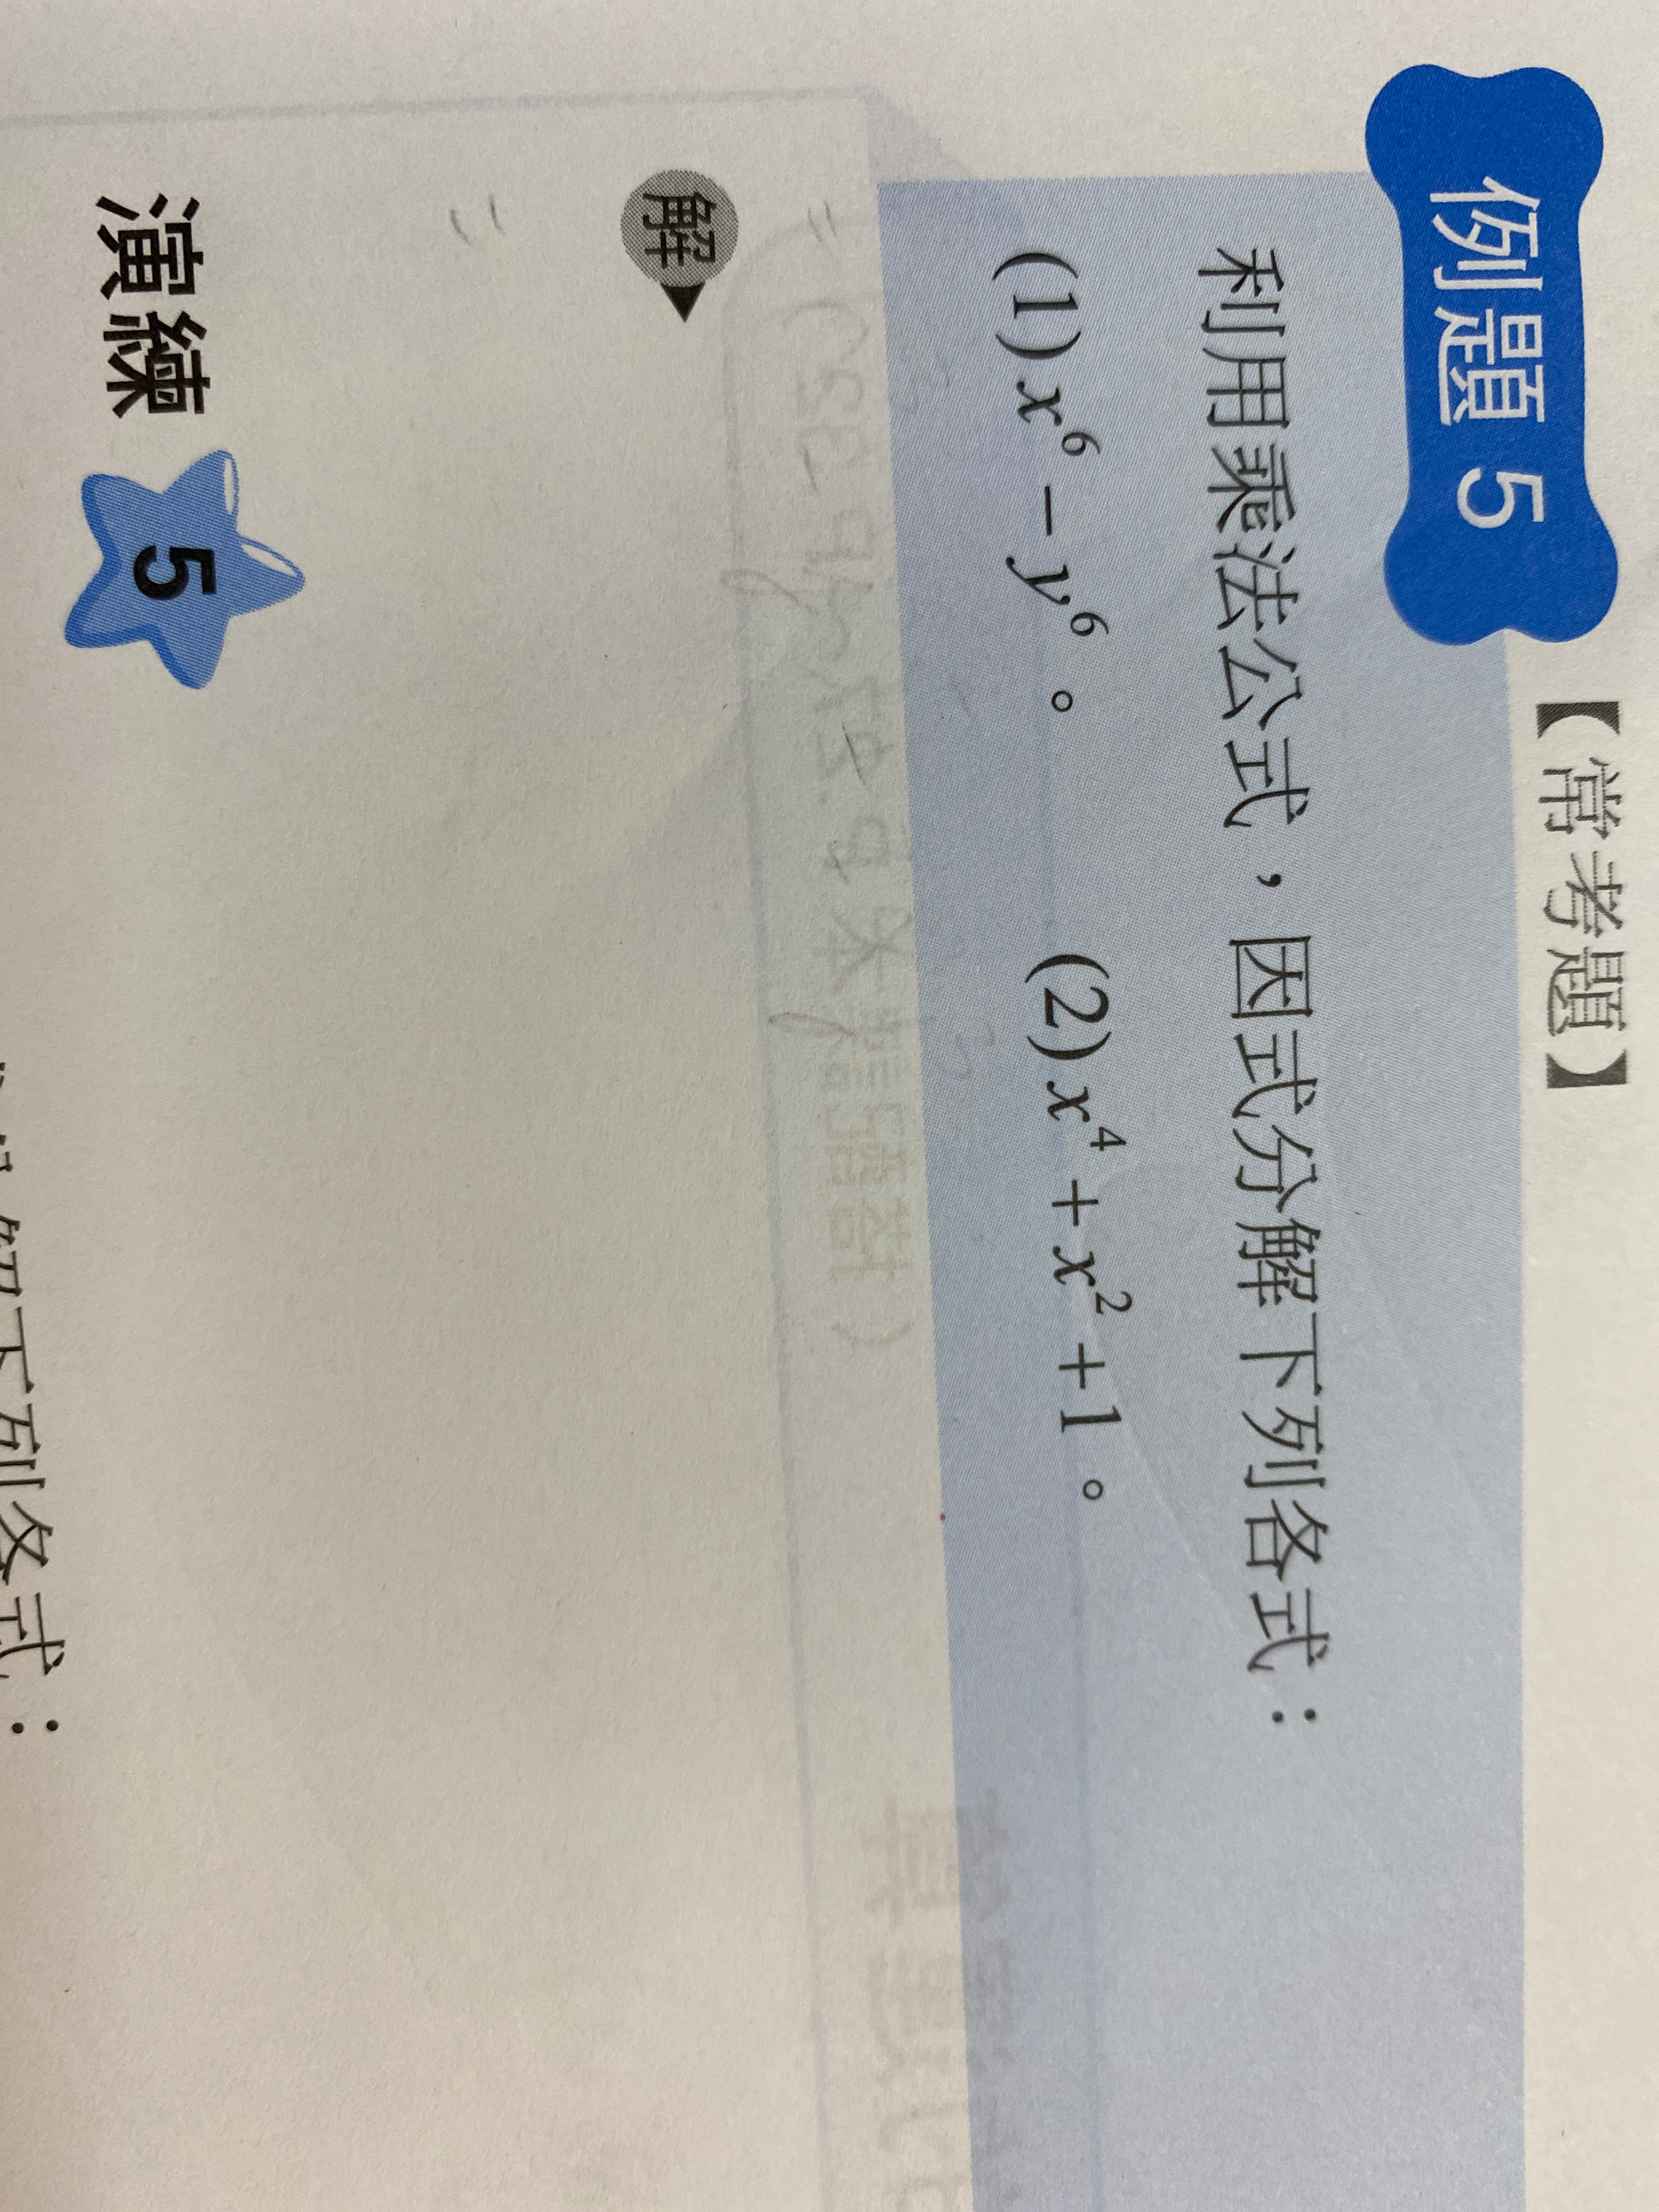 例題 5 【常考題】
利用乘法公式，因式分解下列各式：
(1) x⁶ − y⁶。 (2) x⁴ + x² + 1。
解
演練 5
解下列各式：